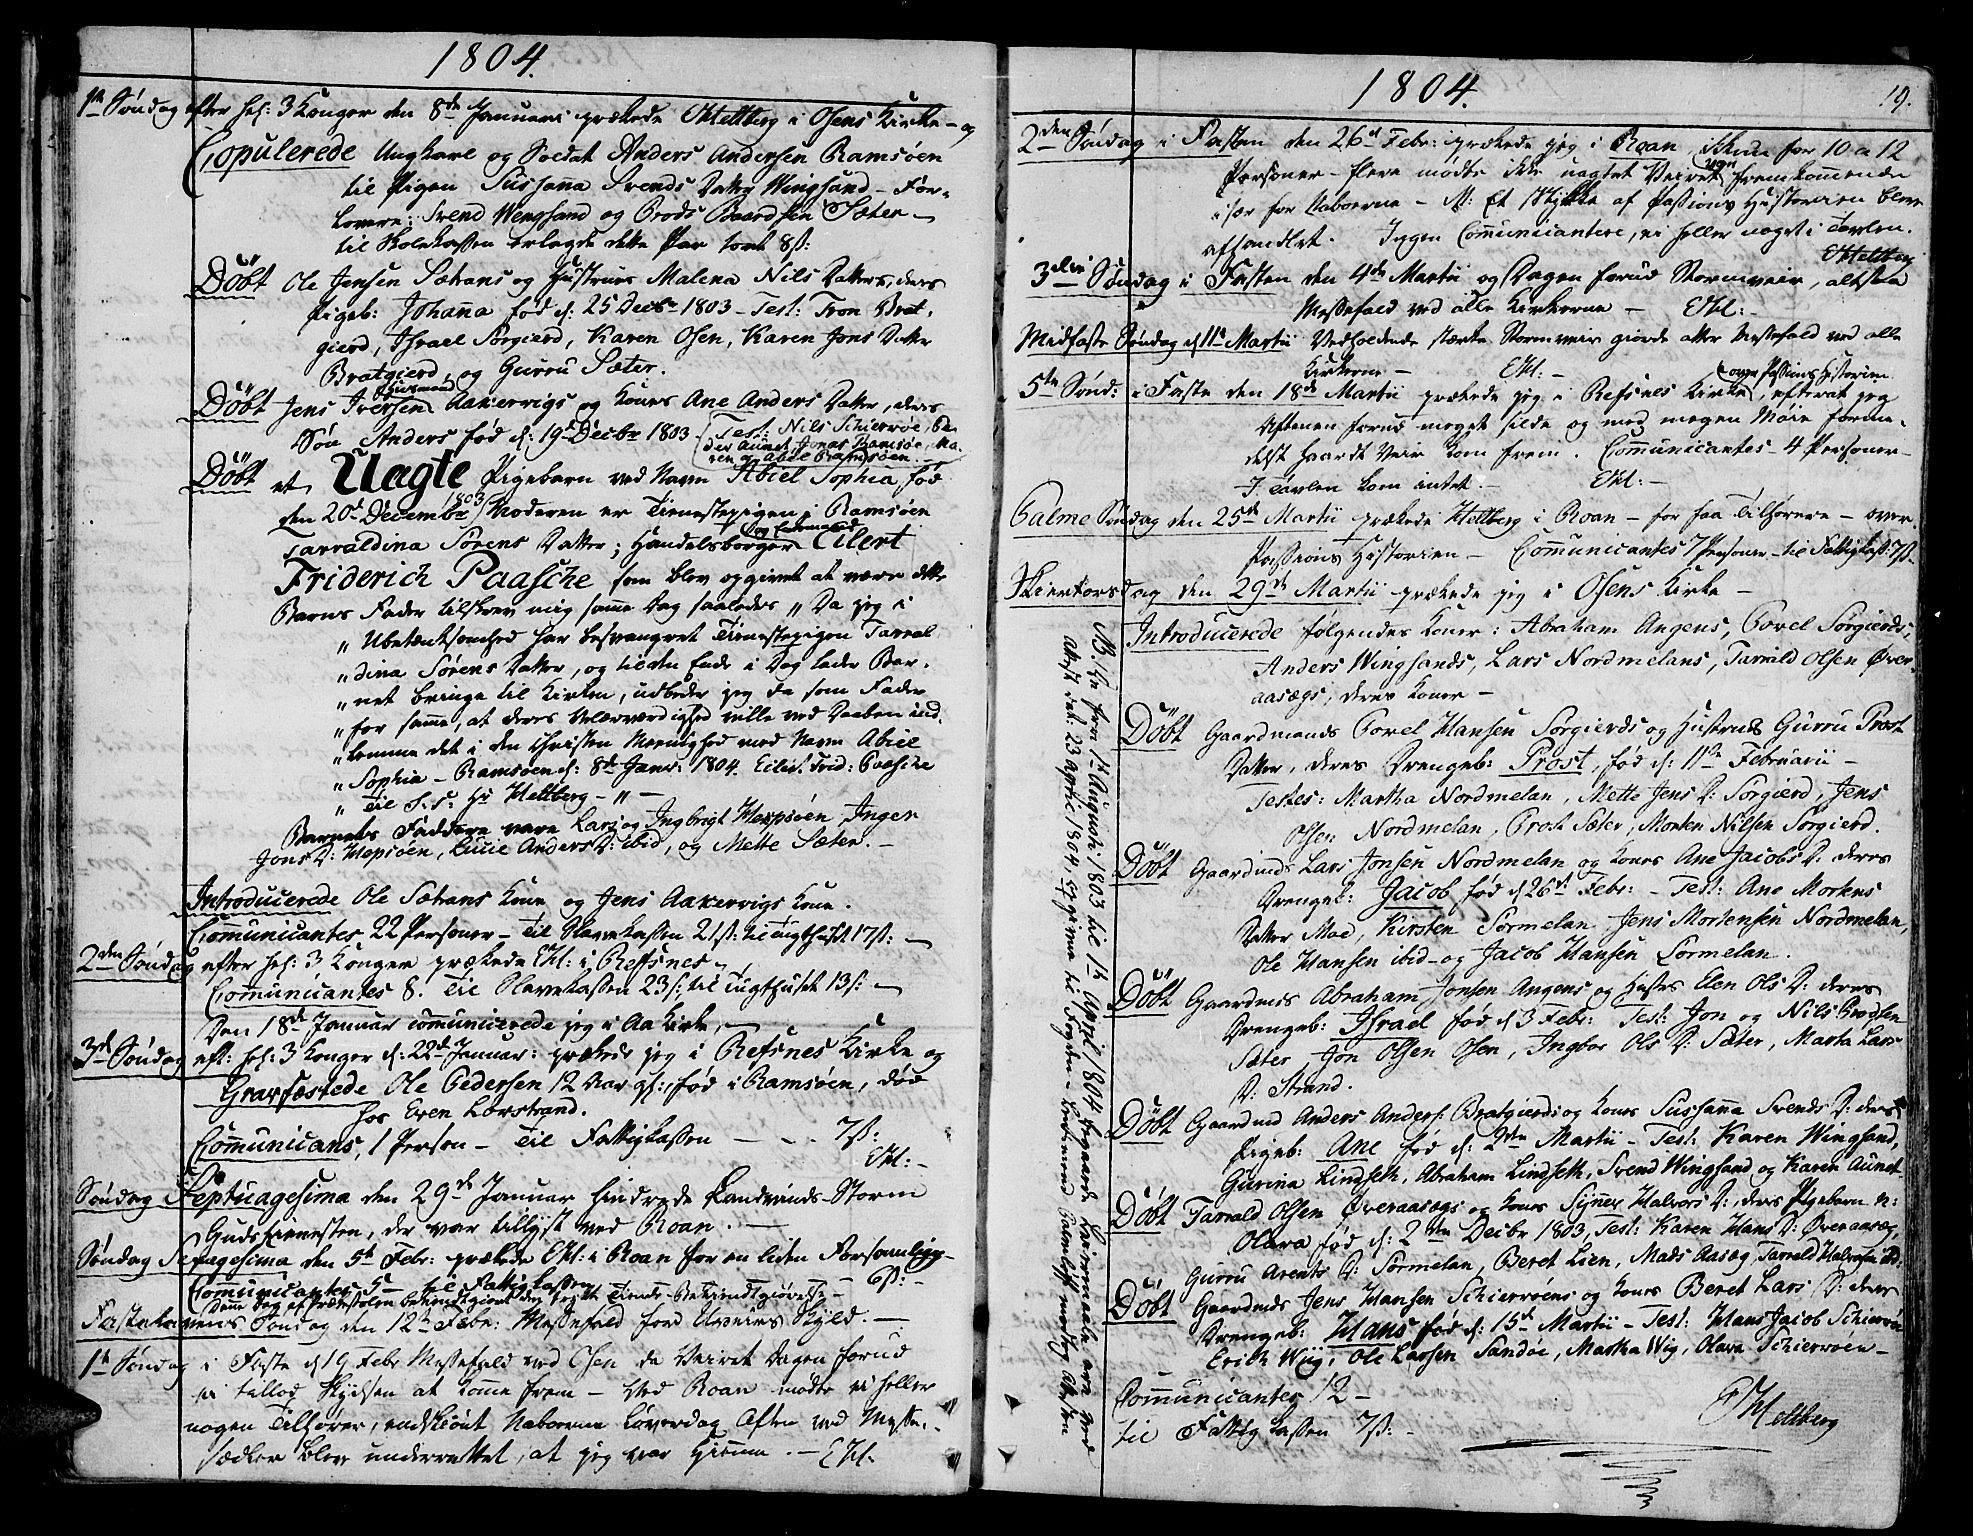 1804.
1te Søndag efter hel: 3 Konger den 8de Januarii prækede EHeltberg i Osens Kirke - og
Copulerede Ungkarl og Soldat Anders Andersen Ramsöen
til Pigen Sussana Svends Datter Wingsand - For-
lovere: Svend Wengsand og Brods Baardsen Sæter -
til Skolekassen erlagde dette Par 8ß:
Döbt Ole Jensen Sætrans og Hustrues Malena Nils Datters, deres
Pigeb: Johanna fød d: 25 Decbr 1803 - Test: Tron Brat-
gierd, Israel Sorgierd, Karen Osen, Karen Jons Datter
Bratgierd, og Gurru Sæter.
Döbt Jens Iversen Huusmand Aakervigs og Kones Ane Anders Datter, deres
Søn Anders fød d: 19de Decbr 1803. Test: Nils Schierröe, Pe-
der Aunet, Jonas Ramsöe, Ma-
ren og Abiel Ramsöen. -
Döbt et Uægte Pigebarn ved Navn Abiel Sophia, fød
den 20de Decembr 1803, Moderen er Tienestepigen i Ramsöen
Tarraldina Sörens Datter; Handelsborger og Eiermand Eilert
Friderich Paasche som blev opgivet at være dette
Barns Fader tilskrev mig samme Dag saaledes „ Da jeg i
„ Ubetænksomhed har besvangret Tienestepigen Tarral
„ dina Sörens Datter, og til den Ende i Dag lader Bar-
„ net bringe til Kirken, udbeder jeg da som Fader
„ for samme, at deres Velærværdighed ville ved Daaben ind-
„ lemme det i den Christen Meenighed med Navn Abiel
„ Sophia - Ramsöen d: 8de Janr: 1804. Eilert Frid: Paasche
„ Til S. T: Hr Heltberg - „ -
Barnets Faddere vare Lars og Ingbrigt Hepsöen, Inger
Jons D: Hepsöen, Lucie Anders D: ibid, og Mette Sæter. -
Introducerede Ole Sætrans Kone og Jens Aakervigs Kone.
Communicantes 22 Personer - Til Slavekassen 21ß: til Tugthuset 17ß: -
2den Søndag efter hel: 3 Konger prækede EH: i Refsnes -
Communicantes 8. Til Slavekassen 23ß: til Tugthuset 13ß: -
Den 18de Januar communicerede jeg i Aa Kirke, -
3de Søndag eft: hel: 3 Konger d: 22de Januar: prækede jeg i Refsnes Kirke og
Gravfæstede Ole Pedersen 12 Aar gl:, fød i Ramsöen, død
hos Even Lorstrand.
Communicans, 1 Person - Til Fattigkassen - - - 7ß:
EH: -
Søndag Septuagesima den 29de Januar hindrede Landvinds-Storm
Gudstienesten, der var tillyst ved Roan. -
Søndag Sexagesima den 5te Febr: prækede EH: i Roan for en liden Forsamling -
Communicantes - til Fattigkassen - 6ß: -
Denne Dag af Prækestolen bekiendtgiort den Tiende-Bekiendtgiørelse -
Fastelavens Søndag den 12te Febr: Messefald for Uveirs Skyld. -
1te Søndag i Faste d 19 Febr Messefald ved Osen da Veiret Dagen forud
ei tillod Skydsen at komme frem - Ved Roan mødte ei heller
nogen Tilhører, endskiönt Naboerne Löverdag Aften ved Messe-
sædler blev underrettet, at jeg var Hiemme. - EH.
1804.
19.
2den Søndag i Fasten den 26de Febr: prækede jeg i Roan, ikkun for 10 a 12
Personer - flere mødte ikke uagtet Veiret var fremkommende
især for Naboerne - N: Et Stykke af Passions Historien blev
afhandlet. Ingen Communicantere, ei heller noget i Tavlen.
EHeltberg
3die Søndag i Fasten den 4de Martii og Dagen forud Stormveir, altsaa
Messefald ved alle Kirkerne - EH: -
Midfaste Søndag d 11te Martii Vedholdende stærke Stormveir giorde atter Messefald ved alle
Kirkerne - EH: -
5te Sønd: i Faste den 18de Martii prækede jeg i Refsnes Kirke over Passions Historien, efterat jeg
Aftenen forud meget silde og med megen Møie forme-
delst haardt Veir kom frem. Communicantes - 4 Personer -
I Tavlen kom intet. - EH: -
Palme Søndag den 25de Martii prækede Heltberg i Roan - for faa Tilhørere - over
Passions Historien - Communicantes 7 Personer - til Fattigkass: 7ß -
Skiertorsdag den 29de Martii prækede jeg i Osens Kirke -
Introducerede følgendes Koner: Abraham Angens, Povel Sorgierds,
Anders Wingsands, Lars Nordmelans, Tarrald Olsen Över-
aasægs, deres Koner -
Döbt Gaardmands Povel Hansen Sorgierds og Hustrues Gurru Prost
Datter, deres Drengeb: Prost, fød d: 11te Februarii -
Testes: Martha Nordmelan, Mette Jens D: Sorgierd, Jens
Olsen Nordmelan, Prost Sæter, Morten Nilsen Sorgierd.
Döbt Gaardmds Lars Jonsen Nordmelan og Kones Ane Jacobs D: deres
Drengeb: Jacob fød d 26de Febr: - Test: Ane Mortens
Datter Moe, Kirsten Sörmelan, Jens Mortensen Nordmelan,
Ole Hansen ibid - og Jacob Hansen Sormelan.
Döbt Gaardmds Abraham Jonsen Angens og Hustrs Elen Ols D: deres
Drengeb: Israel fød d 3 Febr: Test: Jon og Nils Brodsen
Sæter, Jon Olsen Osen, Ingbor Ols D: Sæter, Marta Lars
D: Strand.
Döbt Gaardmd Anders Anders: Bratgierds og Kones Sussanna Svends D: deres
Pigeb: Ane fød d: 2den Martii - Test: Karen Wingsand,
Gurina Lindseth, Abraham Lindseth, Svend Wingsand og Karen Aunet
Döbt Tarrald Olsen Øveraasægs og Kones Signes Halvors D:, deres Pigebarn n:
Olava fød d: 2den Decbr 1803, Test: Karen Hans D: Øveraasæg,
Gurru Arents D: Sormelan, Beret Lien, Mads Aasæg, Tarrald Halvorsen ib:
Döbt Gaardmds Jens Hansen Schierröens og Kones Beret Lars D: deres
Drengeb: Hans fød d: 15de Martii - Test: Hans Jacob Schierröe
Erich Wiig, Ole Larsen Sandöe, Martha Wig, Olava Schierröen -
Communicantes 12 -
til Fattig Kassen 7ß: -
EHeltberg
NB Ifra 1te Augusti 1803 til 1te April 1804 Leiermaale ere
attest dat: 23 april 1804, er givne til Fogden -